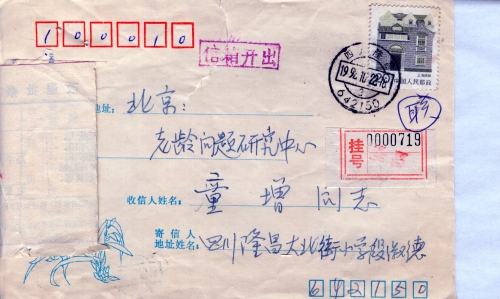 100010
信箱开出
中国人民邮政
1992.10.22.18
642150
地址: 北京:
老龄问题研究中心
挂号
0000719
收信人姓名: 童增同志
寄信人
地址姓名: 四川隆昌大北街小学段淑德
642150